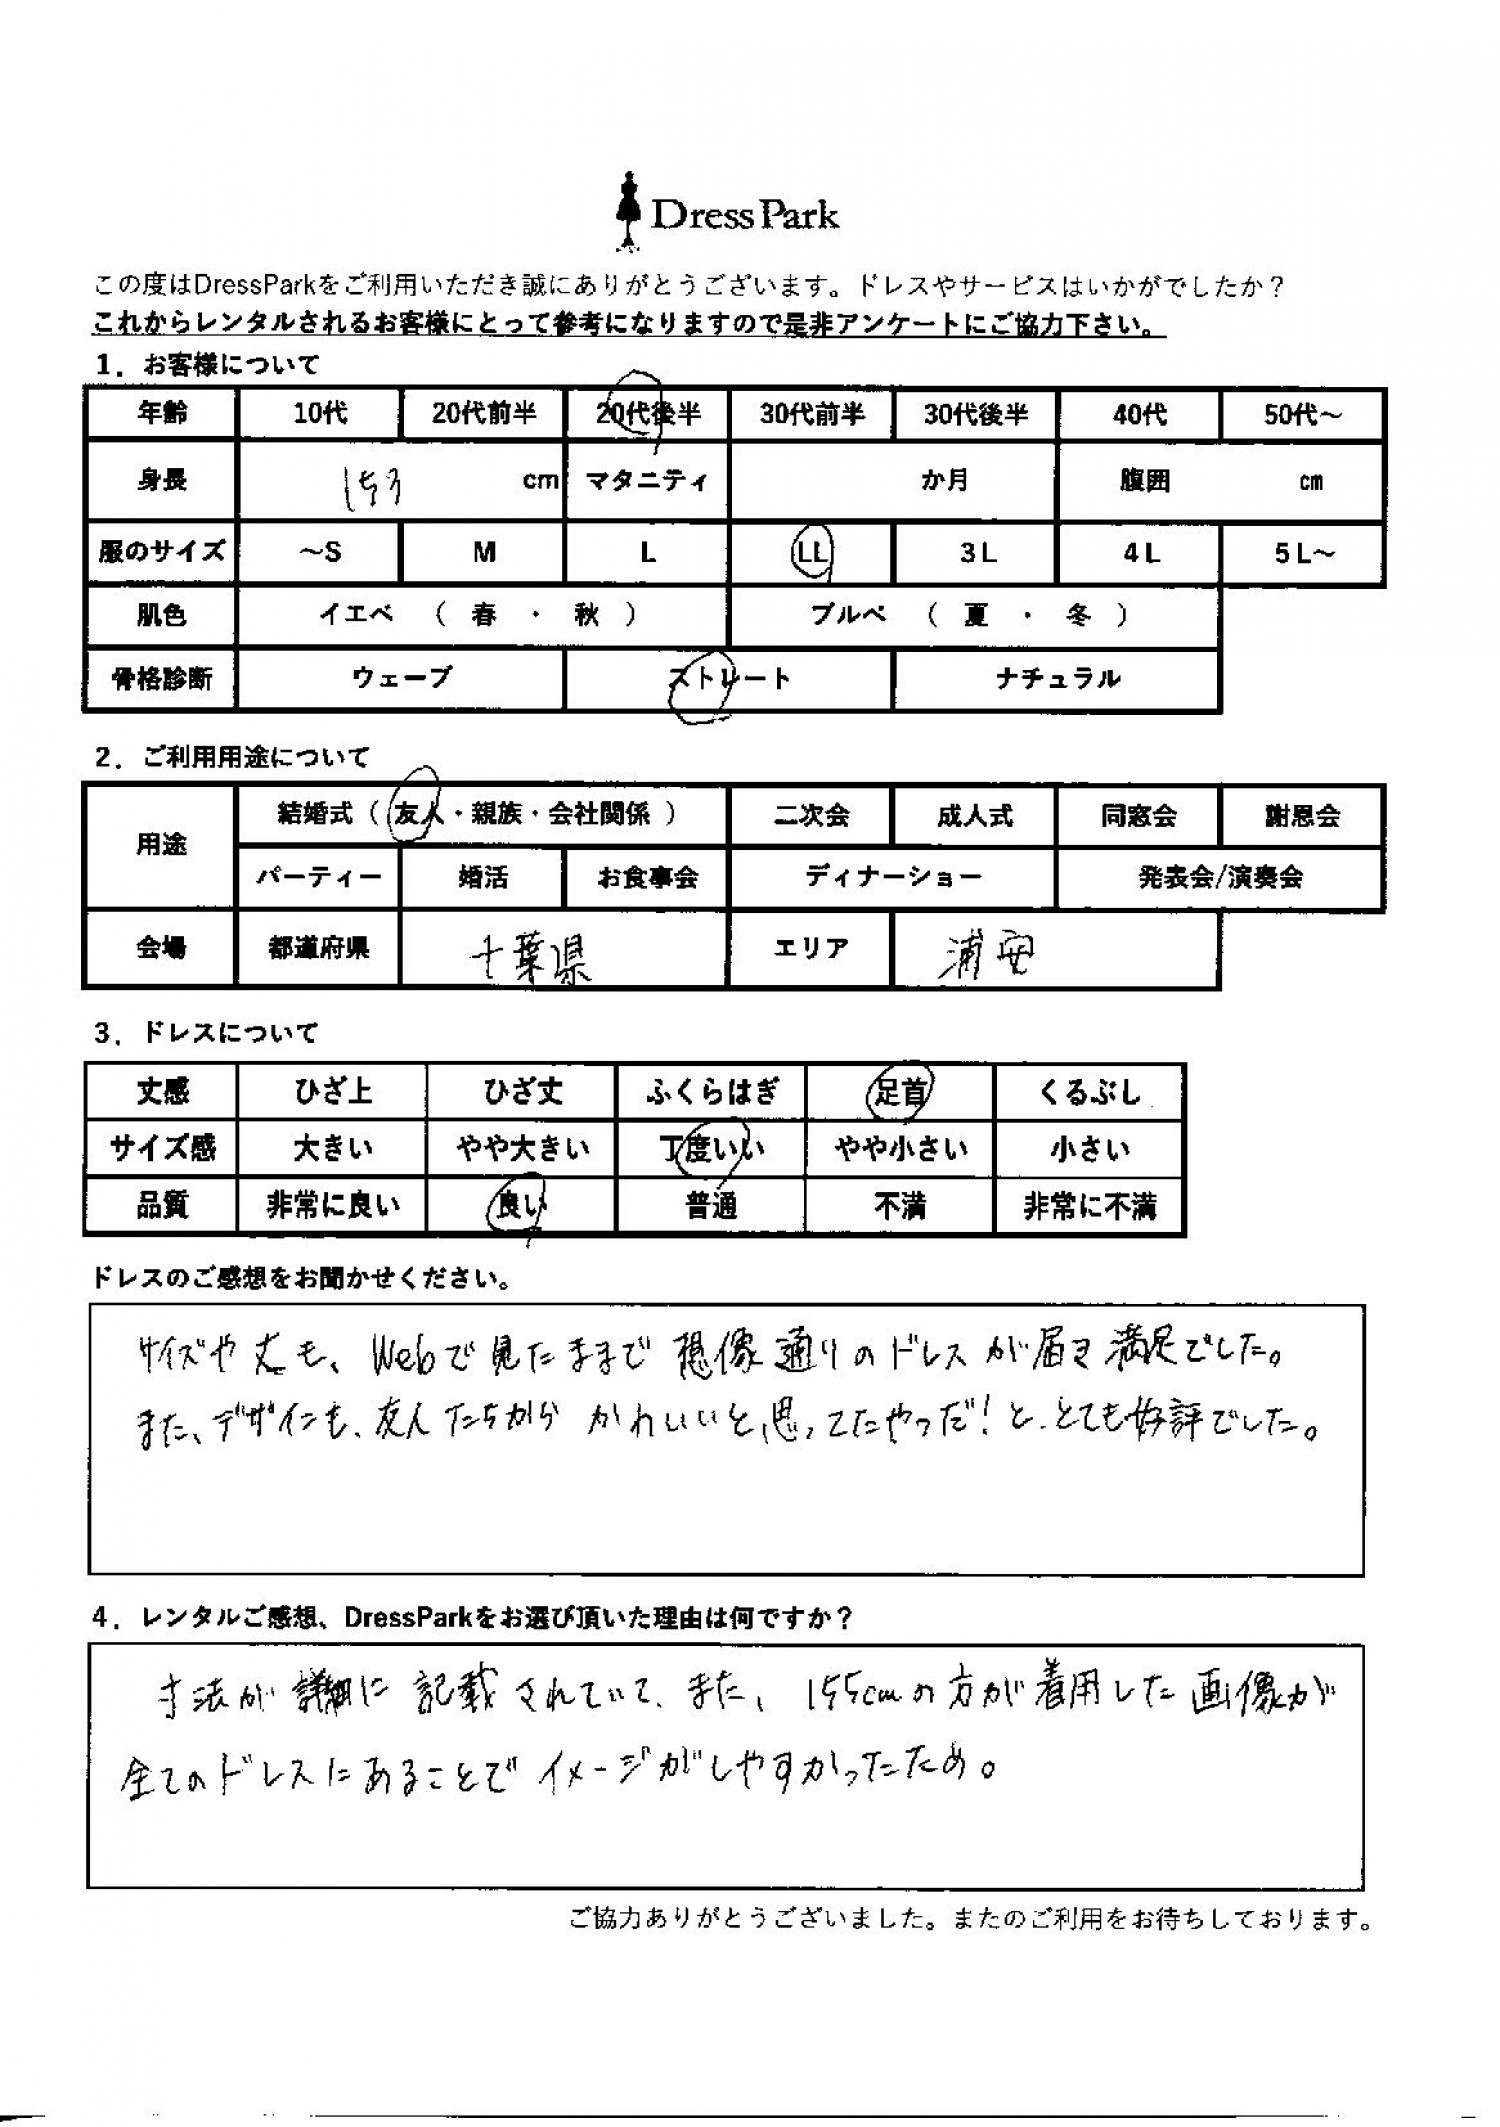 DressPark
この度はDressParkをご利用いただき誠にありがとうございます。ドレスやサービスはいかがでしたか？
これからレンタルされるお客様にとって参考になりますので是非アンケートにご協力下さい。
1．お客様について
年齢 10代 20代前半 20代後半 30代前半 30代後半 40代 50代～
身長 153 cm マタニティ か月 腹囲 cm
服のサイズ ～S M L LL 3L 4L 5L～
肌色 イエベ （ 春 ・ 秋 ） ブルベ （ 夏 ・ 冬 ）
骨格診断 ウェーブ ストレート ナチュラル
2．ご利用用途について
用途 結婚式（ 友人・親族・会社関係 ） 二次会 成人式 同窓会 謝恩会
パーティー 婚活 お食事会 ディナーショー 発表会/演奏会
会場 都道府県 千葉県 エリア 浦安
3．ドレスについて
丈感 ひざ上 ひざ丈 ふくらはぎ 足首 くるぶし
サイズ感 大きい やや大きい 丁度いい やや小さい 小さい
品質 非常に良い 良い 普通 不満 非常に不満
ドレスのご感想をお聞かせください。
サイズや丈も、Webで見たままで想像通りのドレスが届き満足でした。
また、デザインも、友人たちからかわいいと思ってたやつだ！と、とても好評でした。
4．レンタルご感想、DressParkをお選び頂いた理由は何ですか？
寸法が詳細に記載されていて、また、155cmの方が着用した画像が
全てのドレスにあることでイメージがしやすかったため。
ご協力ありがとうございました。またのご利用をお待ちしております。